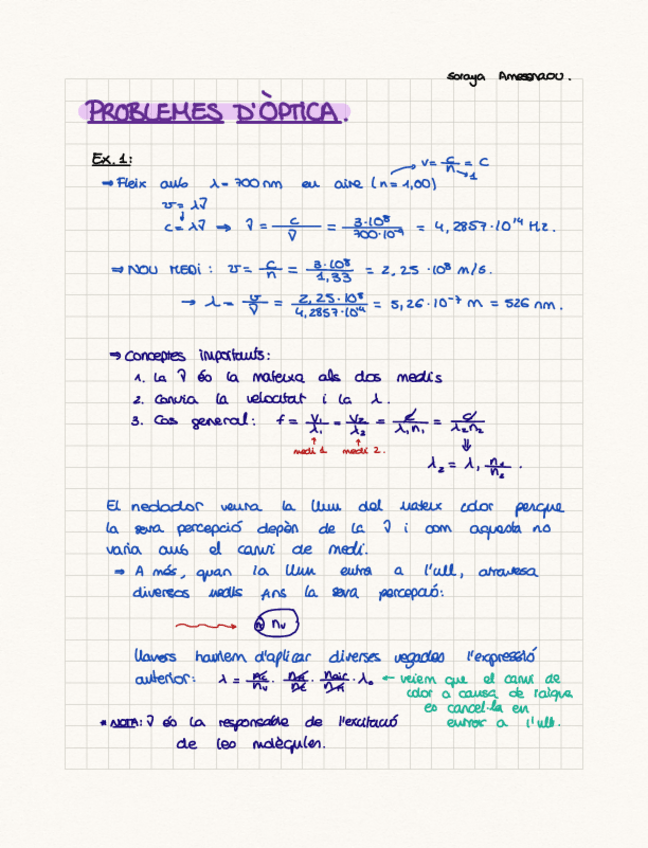 Soraya Amessnaou.
PROBLEMES D'ÒPTICA.
Ex. 1:
v = c/n = c
→ 1
⇒ Fleix amb λ = 700 nm en aire (n = 1,00)
v = λν
c = λν ⇒ ν = c/ν = 3·10⁸/700·10⁻⁹ = 4,2857·10¹⁴ Hz.
⇒ NOU MEDI: v = c/n = 3·10⁸/1,33 = 2,25·10⁸ m/s.
→ λ = v/ν = 2,25·10⁸/4,2857·10¹⁴ = 5,26·10⁻⁷ m = 526 nm.
⇒ Conceptes importants:
1. La ν és la mateixa als dos medis
2. Canvia la velocitat i la λ.
3. Cas general: f = v₁/λ₁ = v₂/λ₂ = c/λ₁n₁ = c/λ₂n₂
↑ medi 1 ↑ medi 2.
⇓
λ₂ = λ₁ n₁/n₂.
El nedador veura la llum del mateix color perque
la seva percepció depèn de la ν i com aquesta no
varia amb el canvi de medi.
⇒ A més, quan la llum entra a l'ull, atravesa
diversos medis fins la seva percepció:
n nᵥ
Llavors hauríem d'aplicar diverses vegades l'expressió
anterior: λ = · · · λ₀ ← veiem que el canvi de
color a causa de l'aigua
es cancel·la en
entrar a l'ull.
* NOTA: ν és la responsable de l'excitació
de les molècules.